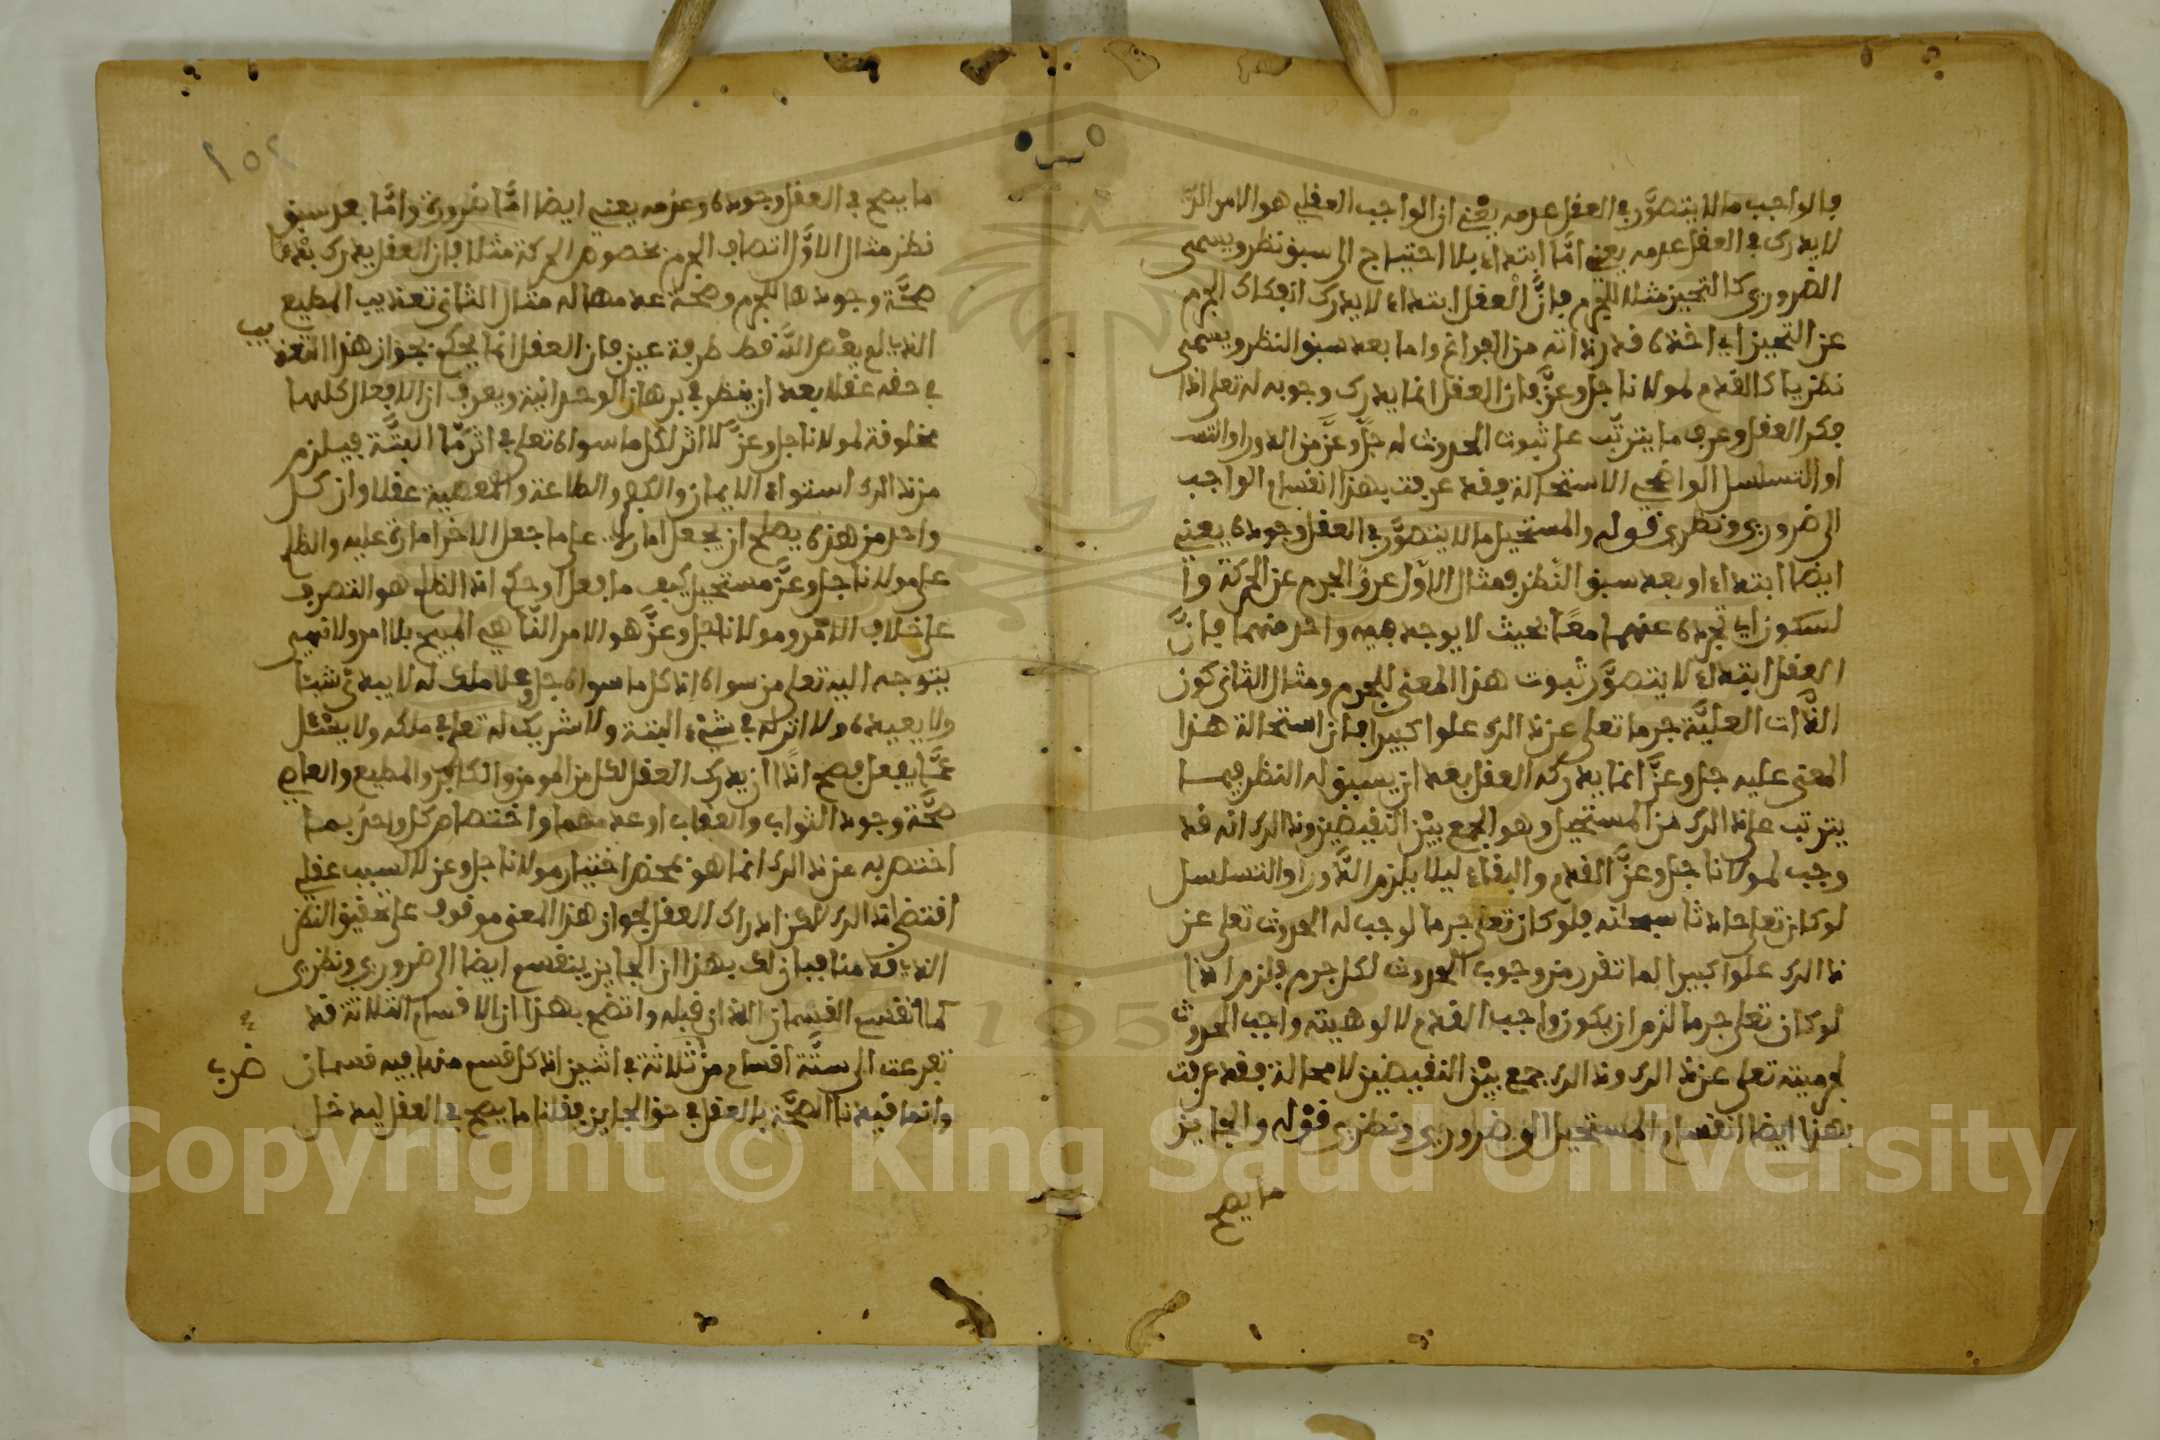 فالواجب ما لا يتصور في العقل عدمه يعني ان الواجب العقلي هو الامر الذ
لا يدرك في العقل عدمه يعني امّا ابتداء بلا احتياج الى سبق نظر ويسمى
الضروري كالتحيز مثلا للجرم فانّ العقل ابتداء لا يدرك انفكاك الجرم
عن التحيز اي اخذه قدر ذاته من الفراغ واما بعد سبق النظر ويسمى
نظريا كالقدم لمولانا جل وعزّ فان العقل انما يدرك وجوبه له تعلى اذا
فكر العقل وعرف ما يترتّب على ثبوت الحدوث له جلّ وعزّ من الدور او التسـ
او التسلسل الواضحي الاستحالة فقد عرفت بهذا انقسام الواجب
الى ضروري ونظري قوله والمستحيل ما لا يتصوّر في العقل وجوده يعني
ايضا ابتداء او بعد سبق النّظر فمثال الاوّل عروّ الجرم عن الحركة وا
لسكون اي تجرده عنهما معًا بحيث لا يوجد فيه واحد منهما فانّ
العقل ابتداء لا يتصوّر ثبوت هذا المعنى للجرم ومثال الثاني كون
الذّات العليّة جرما تعلى عن ذلك علوا كبيرا فان استحالة هذا
المعنى عليه جل وعزّ انما يدركه العقل بعد ان يسبق له النظر فيما
يترتب على ذلك من المستحيل وهو الجمع بيْن النقيضين وذلك انه قد
وجب لمولانا جل وعزّ القدم والبقاء ليلا يلزم الدّور او التسلسل
لو كان تعلى حادثا سبحانه فلو كان تعلى جرما لوجب له الحدوث تعلى عن
ذلك علوا كبيرا لما تقرر من وجوب الحدوث لكل جرم فلزم اذا
لو كان تعلى جرما لزم ان يكون واجب القدم لالوهيته واجب الحدوث
لجرميته تعلى عن ذلك وذلك جمع بيْن النقيضين لا محالة فقد عرفت
بهذا ايضا انقسام المستحيل الى ضروري ونظري قوْله والجايز
ما يصح
١٥٢
ما يصح في العقل وجوده وعدمه يعني ايضا امّا ضرورة وامّا بعد سبق
نظر مثال الاوّل اتصاف الجرم بخصوص الحركة مثلا فان العقل يدرك بدءا
صحّة وجودها للجرم وصحة عدمها له مثال الثاني تعذيب المطيع
الذي لم يعْص اللّه قط طرفة عين فان العقل انما يحكم بجواز هذا التعذ يب
في حقه عقلا بعد ان ينظر في برهان الوحدانية ويعرف ان الافعال كلها
مخلوقة لمولانا جل وعزّ لا اثر لكل ما سواه تعلى في اثر مّا البتّة فيلزم
من ذلك استواء الايمان والكفر والطاعة والمعصية عقلا وان كل
واحد من هذه يصلح ان يجعل امارة على ما جعل الاخر امارة عليه والظلم
على مولانا جل وعزّ مستحيل كيف ما فعل او حكم اذ الظلم هو التصرف
على خلاف الامْر ومولانا جل وعزّ هو الامر النّاهي المبيح بلا امر ولا نهي
يتوجه اليه تعلى من سواه اذ كل ما سواه جل وعلا ملك له لا يبدئ شيئا
ولا يعيده ولا اثر له في شيْء البتة ولا شريك له تعلى في ملكه ولا يسْئل
عمّا يفعل فصح اذًا ان يدرك العقل لكل من المومن والكافر والمطيع والعاصي
صحّة وجود الثواب والعقاب او عدمهما واختصاص كل واحد بما
اختص به عن ذلك انما هو بمحض اختيار مولانا جل وعز لا لسبب عقلي
اقتضى ذلك لكن ادراك العقل لجواز هذا المعنى موقوف على تحقيق النظر
الذي قدمنا فبان لك بهذا ان الجايز ينقسم ايضا الى ضروري ونظري
كما انقسم القسمان اللذان قبله واتضح بهذا ان الاقسام الثلاثة قد
تفرعت الى ستّة اقسام من ثلاثة في اثنين اذ كل قسم منها فيه قسمان
ضرب
وانما قيدنا الصحّة بالعقل في حق الجايز فقلنا ما يصح في العقل ليدخل
Copyright © King Saud University
195